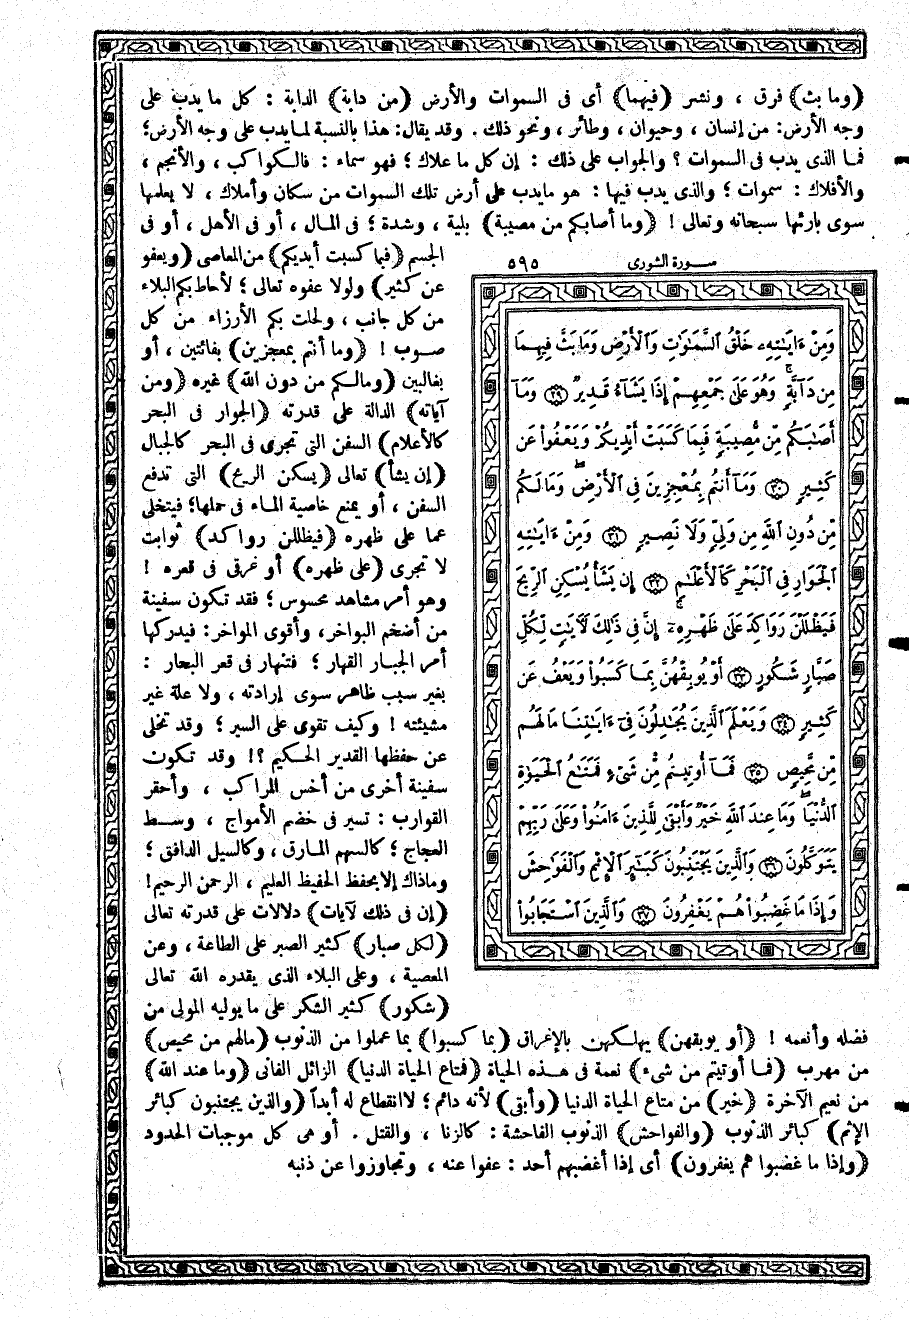 (وما بث) فرق ، ونشر (فيهما) أى فى السموات والأرض (من دابة) الدابة : كل ما يدب على
وجه الأرض: من إنسان ، وحيوان ، وطائر ، ونحو ذلك . وقد يقال: هذا بالنسبة لما يدب على وجه الأرض؛
فما الذى يدب فى السموات ؟ والجواب على ذلك : إن كل ما علاك ؛ فهو سماء : فالكواكب ، والأنجم ،
والأفلاك : سموات ؛ والذى يدب فيها : هو مايدب على أرض تلك السموات من سكان وأملاك ، لا يعلمها
سوى بارئها سبحانه وتعالى ! (وما أصابكم من مصيبة) بلية ، وشدة ؛ فى المال ، أو فى الأهل ، أو فى
الجسم (فبما كسبت أيديكم) من المعاصى (ويعفو
عن كثير) ولولا عفوه تعالى ؛ لأحاط بكم البلاء
من كل جانب ، ولحلت بكم الأرزاء من كل
صوب ! (وما أنتم بمعجزين) بفائتين ، أو
بغالبين (ومالكم من دون الله) غيره (ومن
آياته) الدالة على قدرته (الجوار فى البحر
كالأعلام) السفن التى تجرى فى البحر كالجبال
(إن يشأ) تعالى (يسكن الريح) التى تدفع
السفن ، أو يمنع خاصية الماء فى حملها؛ فيتخلى
عما على ظهره (فيظللن رواكد) ثوابت
لا تجرى (على ظهره) أو غرقى فى قعره !
وهو أمر مشاهد محسوس ؛ فقد تكون سفينة
من أضخم البواخر، وأقوى المواخر: فيدركها
أمر الجبار القهار ؛ فتنهار فى قعر البحار :
بغير سبب ظاهر سوى إرادته ، ولا علة غير
مشيئته ! وكيف تقوى على السير ؛ وقد تخلى
عن حفظها القدير الحكيم ؟! وقد تكون
سفينة أخرى من أخس المراكب ، وأحقر
القوارب : تسير فى خضم الأمواج ، وسط
العجاج ؛ كالسهم المارق ، وكالسيل الدافق ؛
وماذاك إلا بحفظ الحفيظ العليم ، الرحمن الرحيم!
(إن فى ذلك لآيات) دلالات على قدرته تعالى
(لكل صبار) كثير الصبر على الطاعة ، وعن
المعصية ، وعلى البلاء الذى يقدره الله تعالى
(شكور) كثير الشكر على ما يوليه المولى من
سورة الشورى ٥٩٥
وَمِنْ ءَايَٰتِهِۦ خَلْقُ ٱلسَّمَٰوَٰتِ وَٱلْأَرْضِ وَمَا بَثَّ فِيهِمَا
مِن دَآبَّةٍ وَهُوَ عَلَىٰ جَمْعِهِمْ إِذَا يَشَآءُ قَدِيرٌ ٢٩ وَمَآ
أَصَٰبَكُم مِّن مُّصِيبَةٍ فَبِمَا كَسَبَتْ أَيْدِيكُمْ وَيَعْفُوا۟ عَن
كَثِيرٍ ٣٠ وَمَآ أَنتُم بِمُعْجِزِينَ فِى ٱلْأَرْضِ وَمَا لَكُم
مِّن دُونِ ٱللَّهِ مِن وَلِىٍّ وَلَا نَصِيرٍ ٣١ وَمِنْ ءَايَٰتِهِ
ٱلْجَوَارِ فِى ٱلْبَحْرِ كَٱلْأَعْلَٰمِ ٣٢ إِن يَشَأْ يُسْكِنِ ٱلرِّيحَ
فَيَظْلَلْنَ رَوَاكِدَ عَلَىٰ ظَهْرِهِۦٓ إِنَّ فِى ذَٰلِكَ لَءَايَٰتٍ لِّكُلِّ
صَبَّارٍ شَكُورٍ ٣٣ أَوْ يُوبِقْهُنَّ بِمَا كَسَبُوا۟ وَيَعْفُ عَن
كَثِيرٍ ٣٤ وَيَعْلَمَ ٱلَّذِينَ يُجَٰدِلُونَ فِىٓ ءَايَٰتِنَا مَا لَهُم
مِّن مَّحِيصٍ ٣٥ فَمَآ أُوتِيتُم مِّن شَىْءٍ فَمَتَٰعُ ٱلْحَيَوٰةِ
ٱلدُّنْيَا وَمَا عِندَ ٱللَّهِ خَيْرٌ وَأَبْقَىٰ لِلَّذِينَ ءَامَنُوا۟ وَعَلَىٰ رَبِّهِمْ
يَتَوَكَّلُونَ ٣٦ وَٱلَّذِينَ يَجْتَنِبُونَ كَبَٰٓئِرَ ٱلْإِثْمِ وَٱلْفَوَٰحِشَ
وَإِذَا مَا غَضِبُوا۟ هُمْ يَغْفِرُونَ ٣٧ وَٱلَّذِينَ ٱسْتَجَابُوا۟
فضله وأنعمه ! (أو يوبقهن) يهلكهن بالإغراق (بما كسبوا) بما عملوا من الذنوب (مالهم من محيص)
من مهرب (فما أوتيتم من شىء) نعمة فى هذه الحياة (فمتاع الحياة الدنيا) الزائل الفانى (وما عند الله)
من نعيم الآخرة (خير) من متاع الحياة الدنيا (وأبقى) لأنه دائم ؛ لاانقطاع له أبداً (والذين يجتنبون كبائر
الإثم) كبائر الذنوب (والفواحش) الذنوب الفاحشة : كالزنا ، والقتل . أو هى كل موجبات الحدود
(وإذا ما غضبوا هم يغفرون) أى إذا أغضبهم أحد : عفوا عنه ، وتجاوزوا عن ذنبه